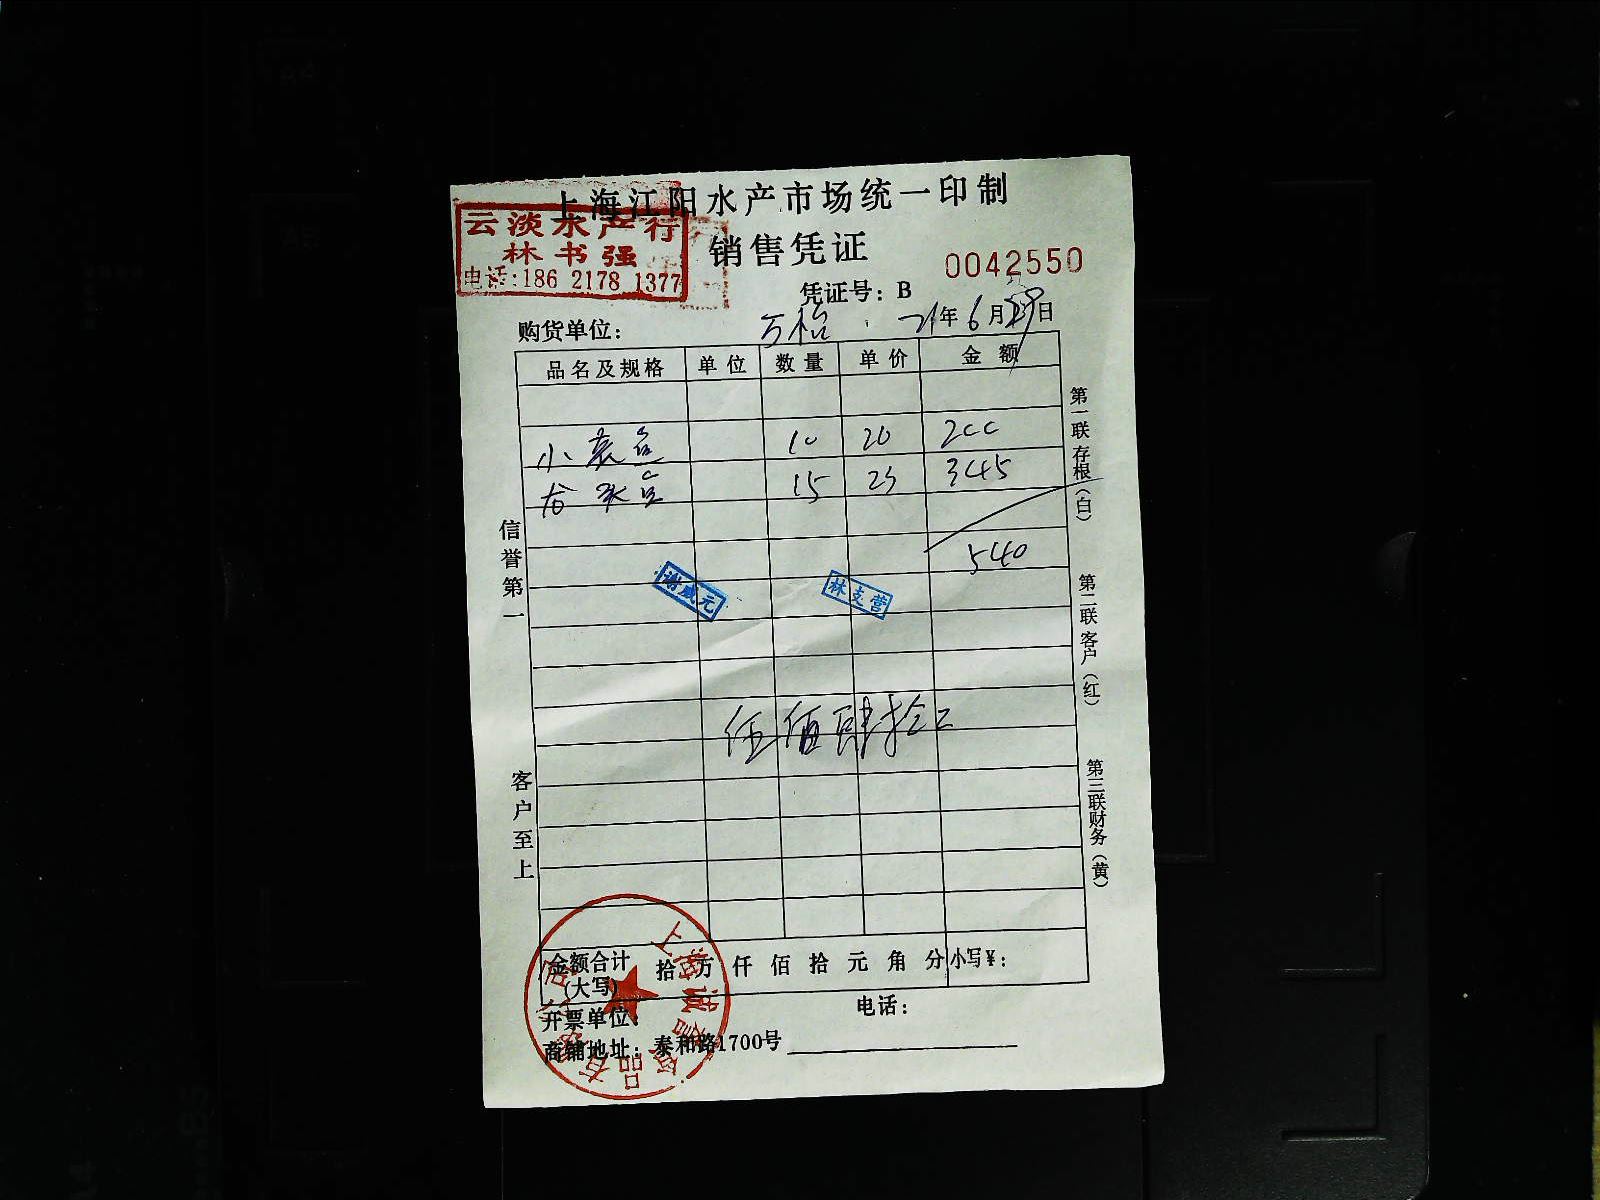 上海江阳水产市场统一印制
云淡水产行
林书强
电话:186 2178 1377
销售凭证
0042550
凭证号：B
购货单位： 万怡 21年6月29日
品名及规格 单位 数量 单价 金额
小 10 20 200
15 23 345
540
谢成元
林支营
伍佰肆拾
信誉第一
客户至上
第一联存根（白）
第二联客户（红）
第三联财务（黄）
金额合计(大写) 拾 万 仟 佰 拾 元 角 分 小写¥：
开票单位： 电话：
商铺地址：泰和路1700号